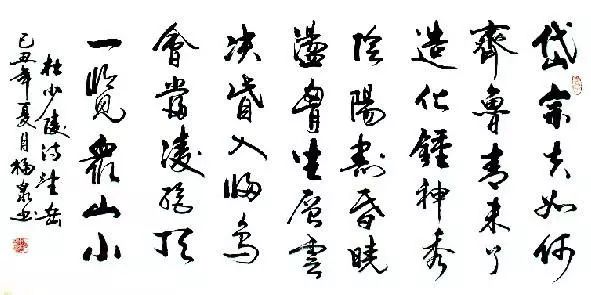 岱宗夫如何
齊魯青未了
造化鍾神秀
陰陽割昏曉
盪胷生層雲
決眥入歸鳥
會當凌絕頂
一覽眾山小
杜少陵诗望岳
己丑年夏月福泉书